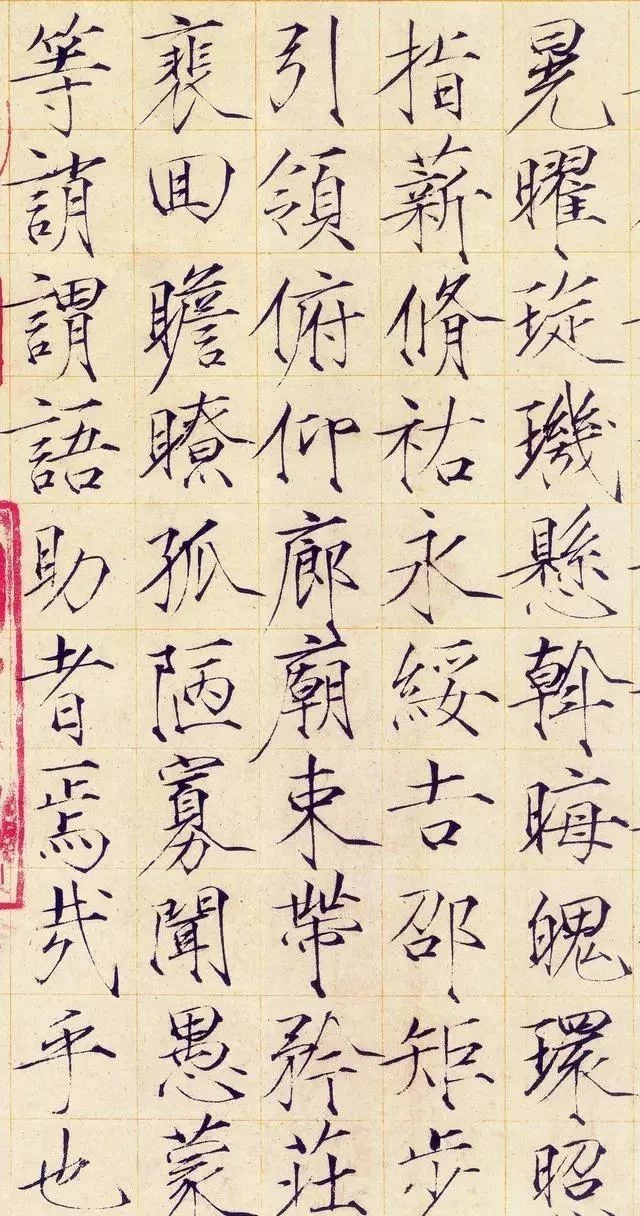 晃曜琁璣懸斡晦魄環照
指薪脩祐永綏吉邵矩步
引領俯仰廊廟束帶矜莊
裴回瞻瞭孤陋寡聞愚蒙
等誚謂語助者焉哉乎也